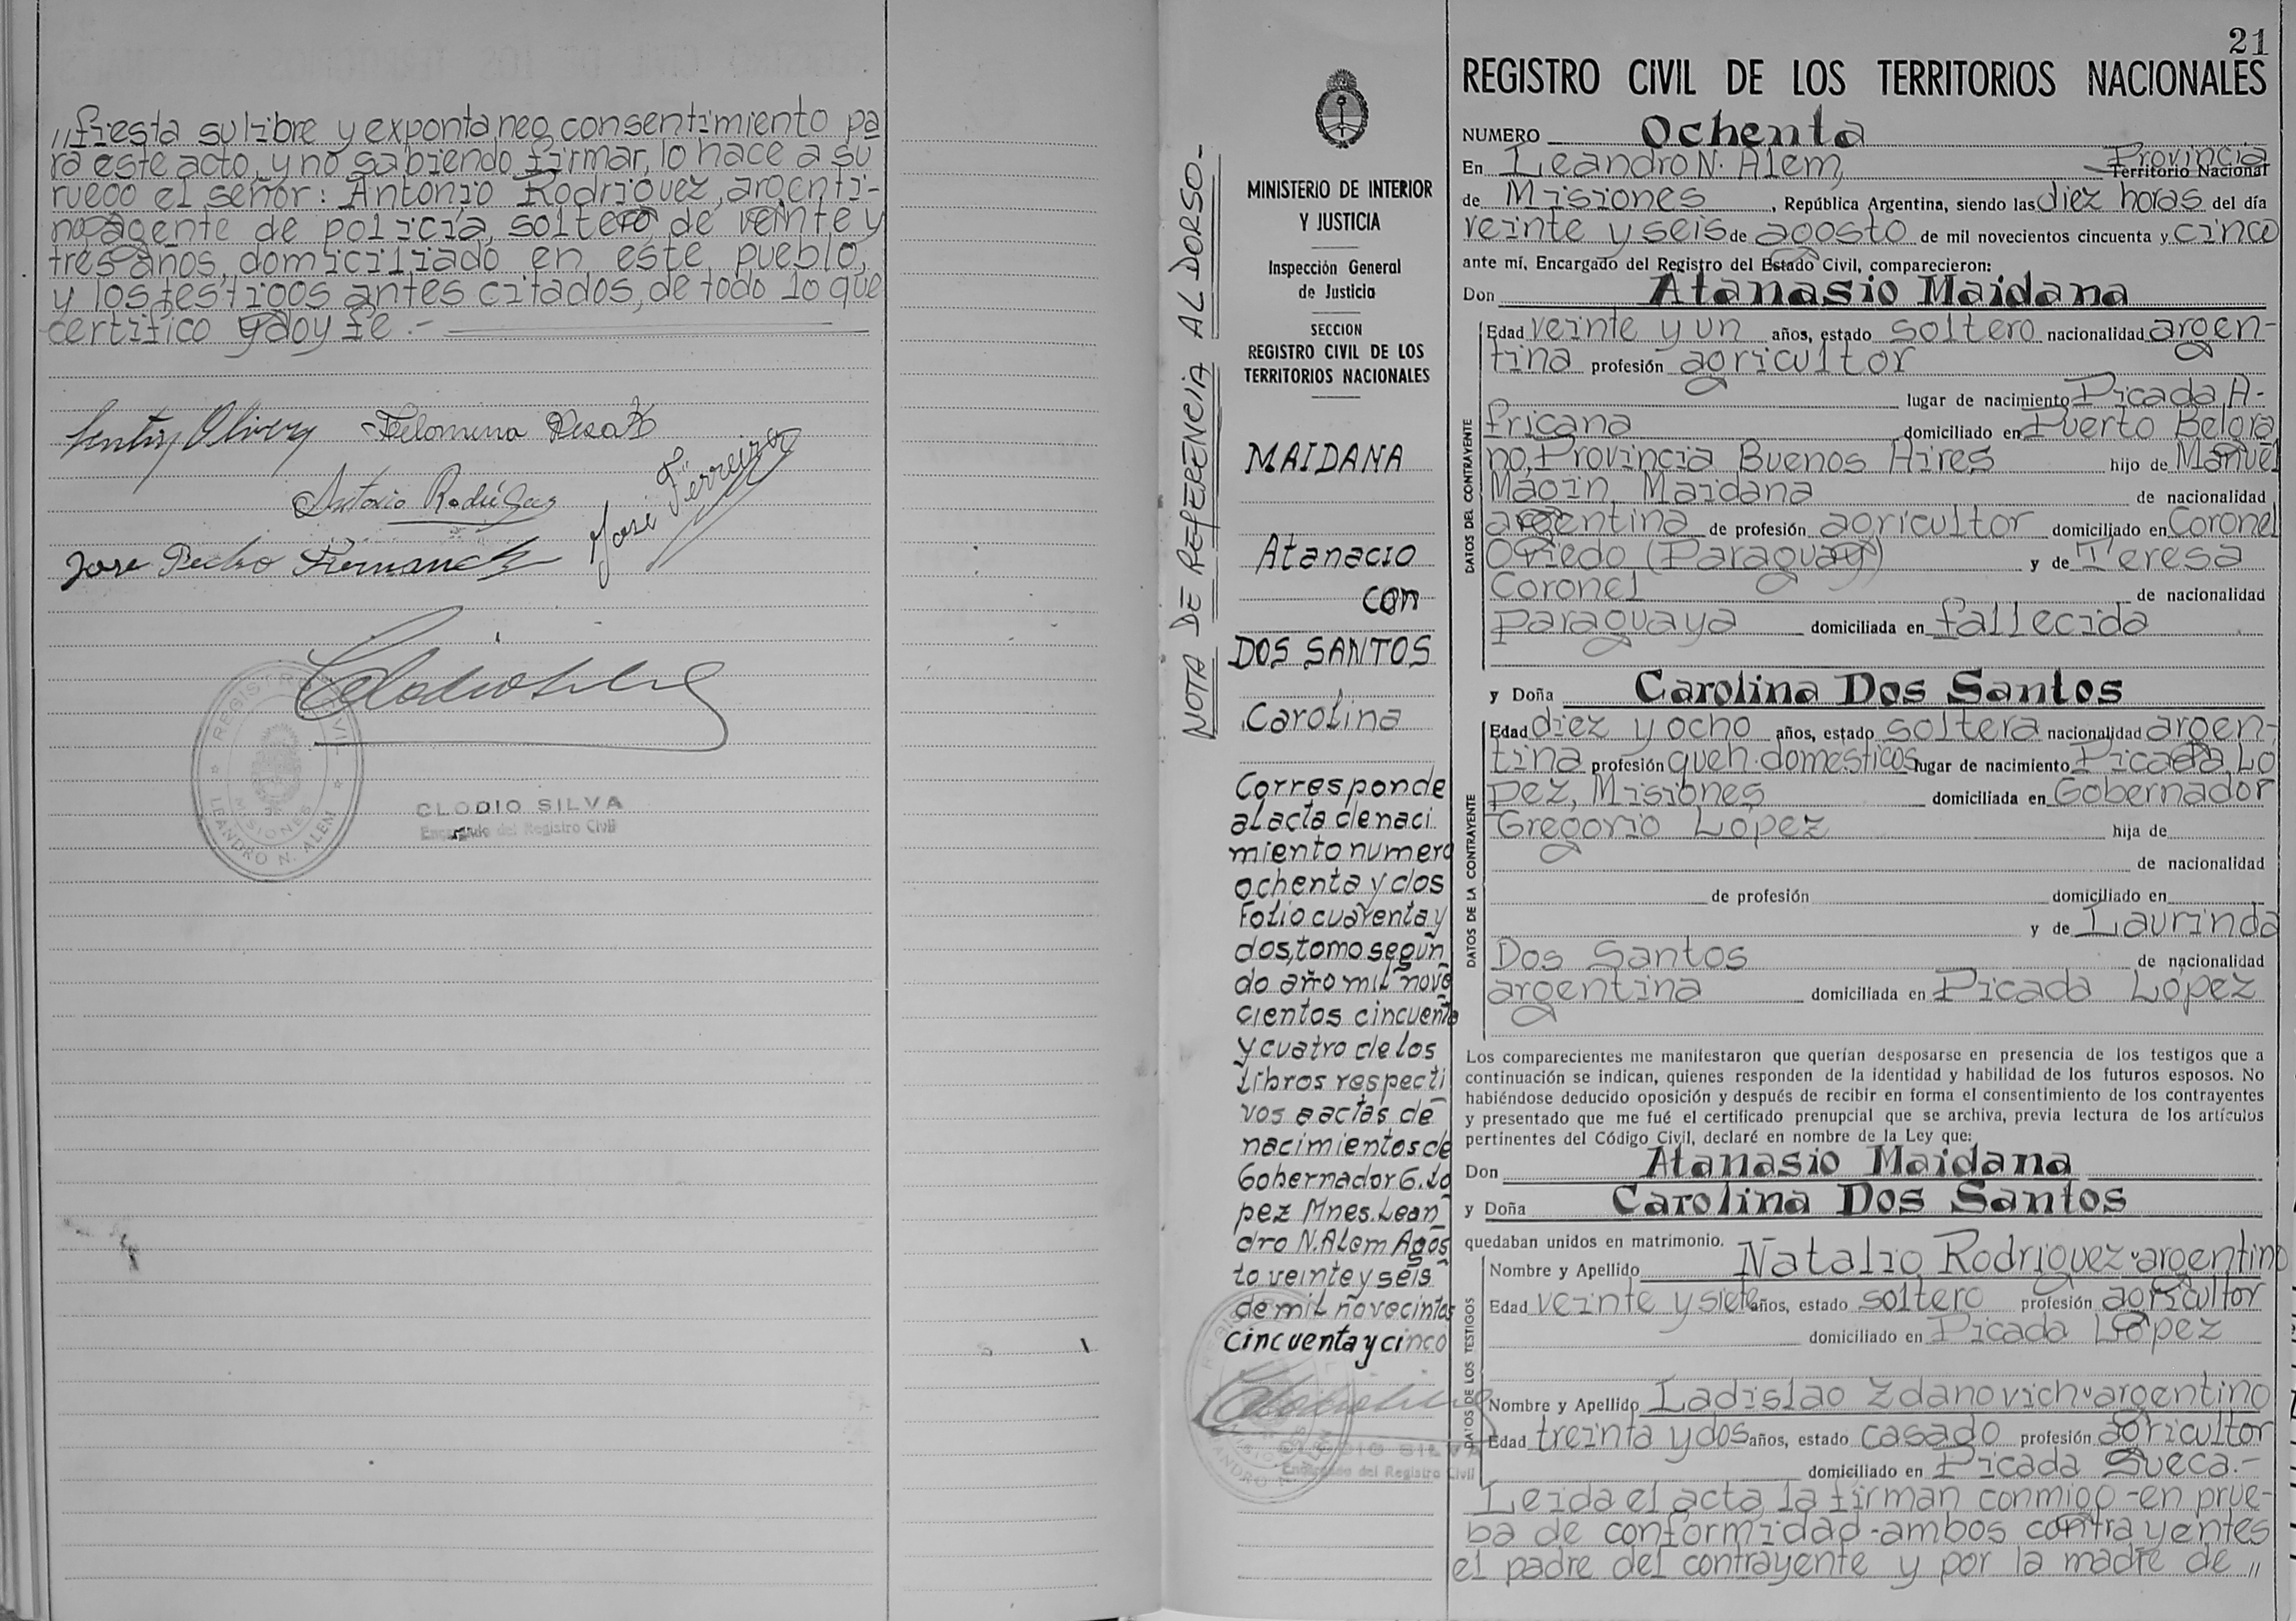 ,,fiesta su libre y expontaneo consentimiento pa
ra este acto, y no sabiendo firmar, lo hace a su
ruego el señor: Antonio Rodriguez, argenti-
no, agente de policía, soltero, de veinte y
tres años, domiciliado en este pueblo,
y los testigos antes citados, de todo lo que
certifico y doy fe.-
Filomena
Antonio Rodríguez
José Ferreira
Jose Pedro Fernandez
REGISTRO CIVIL
MISIONES
LEANDRO N. ALEM
CLODIO SILVA
Encargado del Registro Civil
NOTA DE REFERENCIA AL DORSO.-
MINISTERIO DE INTERIOR
Y JUSTICIA
Inspección General
de Justicia
SECCION
REGISTRO CIVIL DE LOS
TERRITORIOS NACIONALES
MAIDANA
Atanacio
con
DOS SANTOS
Carolina
Corresponde
al acta de naci
miento numero
ochenta y dos
Folio cuarenta y
dos, tomo segun
do año mil nove
cientos cincuenta
y cuatro de los
Libros respecti
vos a actas de
nacimientos de
Gobernador G. Lo
pez Mnes. Lean
dro N. Alem Agos
to veinte y seis
de mil novecintos
cincuenta y cinco
CLODIO SILVA
Encargado del Registro Civil
21
REGISTRO CIVIL DE LOS TERRITORIOS NACIONALES
NUMERO Ochenta
Provincia
En Leandro N. Alem, Territorio Nacional
de Misiones, República Argentina, siendo las diez horas del día
veinte y seis de agosto de mil novecientos cincuenta y cinco
ante mí, Encargado del Registro del Estado Civil, comparecieron:
Don Atanasio Maidana
DATOS DEL CONTRAYENTE
Edad veinte y un años, estado soltero nacionalidad argen-
tina profesión agricultor
lugar de nacimiento Picada A-
fricana domiciliado en Puerto Belgra
no, Provincia Buenos Aires hijo de Manuel
Magin Maidana de nacionalidad
argentina de profesión agricultor domiciliado en Coronel
Oviedo (Paraguay) y de Teresa
Coronel de nacionalidad
Paraguaya domiciliada en fallecida
y Doña Carolina Dos Santos
DATOS DE LA CONTRAYENTE
Edad diez y ocho años, estado soltera nacionalidad argen-
tina profesión queh. domésticos lugar de nacimiento Picada Lo
pez, Misiones domiciliada en Gobernador
Gregorio López hija de
de nacionalidad
de profesión domiciliado en
y de Laurinda
Dos Santos de nacionalidad
argentina domiciliada en Picada López
Los comparecientes me manifestaron que querían desposarse en presencia de los testigos que a
continuación se indican, quienes responden de la identidad y habilidad de los futuros esposos. No
habiéndose deducido oposición y después de recibir en forma el consentimiento de los contrayentes
y presentado que me fué el certificado prenupcial que se archiva, previa lectura de los artículos
pertinentes del Código Civil, declaré en nombre de la Ley que:
Don Atanasio Maidana
y Doña Carolina Dos Santos
quedaban unidos en matrimonio.
DATOS DE LOS TESTIGOS
Nombre y Apellido Natalio Rodriguez-argentino
Edad veinte y siete años, estado soltero profesión agricultor
domiciliado en Picada López
Nombre y Apellido Ladislao Zdanovich-argentino
Edad treinta y dos años, estado casado profesión agricultor
domiciliado en Picada Sueca.-
Leida el acta, la firman conmigo -en prue-
ba de conformidad- ambos contrayentes
el padre del contrayente y por la madre de ,,